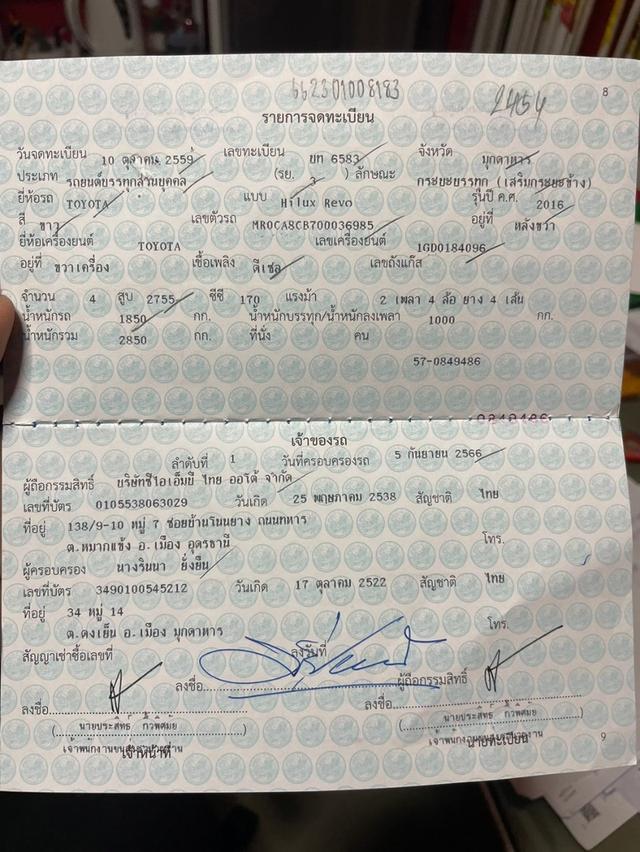 662301008183
2454
8
รายการจดทะเบียน
วันจดทะเบียน 10 ตุลาคม 2559 เลขทะเบียน บท 6583 จังหวัด มุกดาหาร
ประเภท รถยนต์บรรทุกส่วนบุคคล (รย. 3 ) ลักษณะ กระบะบรรทุก (เสริมกระบะข้าง)
ยี่ห้อรถ TOYOTA แบบ Hilux Revo รุ่นปี ค.ศ. 2016
สี ขาว เลขตัวรถ MR0CA8CB700036985 อยู่ที่ หลังขวา
ยี่ห้อเครื่องยนต์ TOYOTA เลขเครื่องยนต์ 1GD0184096
อยู่ที่ ขวาเครื่อง เชื้อเพลิง ดีเซล เลขถังแก๊ส
จำนวน 4 สูบ 2755 ซีซี 170 แรงม้า 2 เพลา 4 ล้อ ยาง 4 เส้น
น้ำหนักรถ 1850 กก. น้ำหนักบรรทุก/น้ำหนักลงเพลา 1000 กก.
น้ำหนักรวม 2850 กก. ที่นั่ง คน
57-0849486
0849486
เจ้าของรถ
ลำดับที่ 1 วันที่ครอบครองรถ 5 กันยายน 2566
ผู้ถือกรรมสิทธิ์ บริษัทซีไอเอ็มบี ไทย ออโต้ จำกัด
เลขที่บัตร 0105538063029 วันเกิด 25 พฤษภาคม 2538 สัญชาติ ไทย
ที่อยู่ 138/9-10 หมู่ 7 ซอยบ้านโนนยาง ถนนทหาร
ต.หมากแข้ง อ.เมือง อุดรธานี โทร.
ผู้ครอบครอง นางรินนา ยั่งยืน
เลขที่บัตร 3490100545212 วันเกิด 17 ตุลาคม 2522 สัญชาติ ไทย
ที่อยู่ 34 หมู่ 14
ต.ดงเย็น อ.เมือง มุกดาหาร โทร.
สัญญาเช่าซื้อเลขที่ ลงวันที่
ลงชื่อ ผู้ถือกรรมสิทธิ์
ลงชื่อ ลงชื่อ
(นายประสิทธิ์ ) (นายประสิทธิ์ )
เจ้าหน้าที่ นายทะเบียน
9